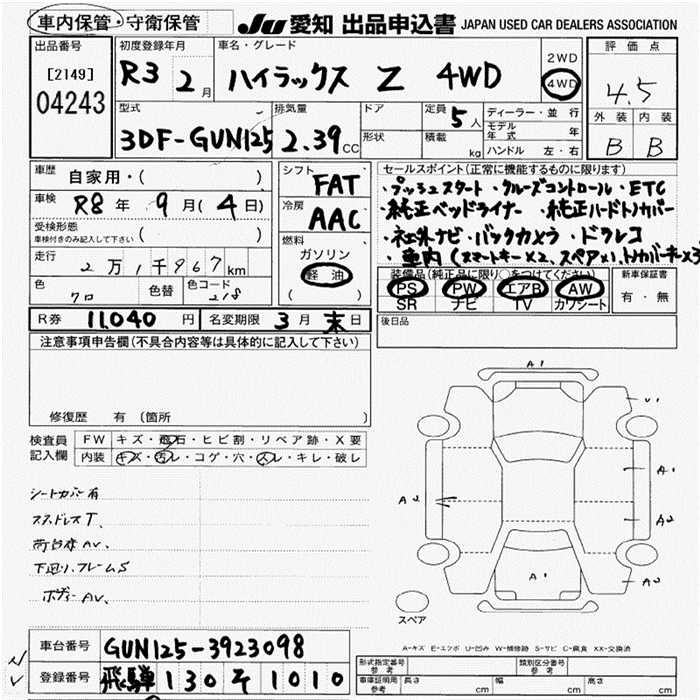 車内保管・守衛保管
JU 愛知 出品申込書 JAPAN USED CAR DEALERS ASSOCIATION
出品番号
[2149]
04243
初度登録年月
R3 2月
車名・グレード
ハイラックス Z 4WD
2WD
4WD
評価点
4.5
外装 内装
B B
型式
3DF-GUN125
排気量
2.39cc
ドア
形状
定員 5人
積載 kg
ディーラー・並行
モデル年式 年
ハンドル 左・右
車歴 自家用・( )
車検 R8年 9月(4日)
受検形態
車検付きのみ記入して下さい ( )
走行 2万1千967km
色 クロ 色替 色コード 218
シフト FAT
冷房 AAC
燃料
ガソリン
軽油
( )
セールスポイント(正常に機能するものに限ります)
・プッシュスタート・クルーズコントロール・ETC
・純正ベッドライナー ・純正ハードトノカバー
・社外ナビ・バックカメラ・ドラレコ
・車内(スマートキー×2、スペア×1、トノカバーキー×3
装備品(純正品に限り○をつけてください)
PS PW エアB AW
SR ナビ TV カワシート
新車保証書
有・無
R券 11,040円 名変期限 3月末日
後日品
注意事項申告欄(不具合内容等は具体的に記入して下さい)
修復歴 有 (箇所
検査員記入欄
FW キズ・飛石・ヒビ割・リペア跡・X要
内装 キズ・汚レ・コゲ・穴・スレ・キレ・破レ
シートカバー有
スタッドレスT.
荷台床AV.
下廻り、フレームS
ボディーAV.
A1
U1
A1
A2
A2
A2
A1
スペア
A-キズ E-エクボ U-凹み W-補修跡 S-サビ C-腐食 XX-交換済
車台番号 GUN125-3923098
登録番号 飛騨 130 そ 1010
型式指定番号 参考
類別区分番号 参考
車庫証明用 参考 長さ cm 幅 cm 高さ cm